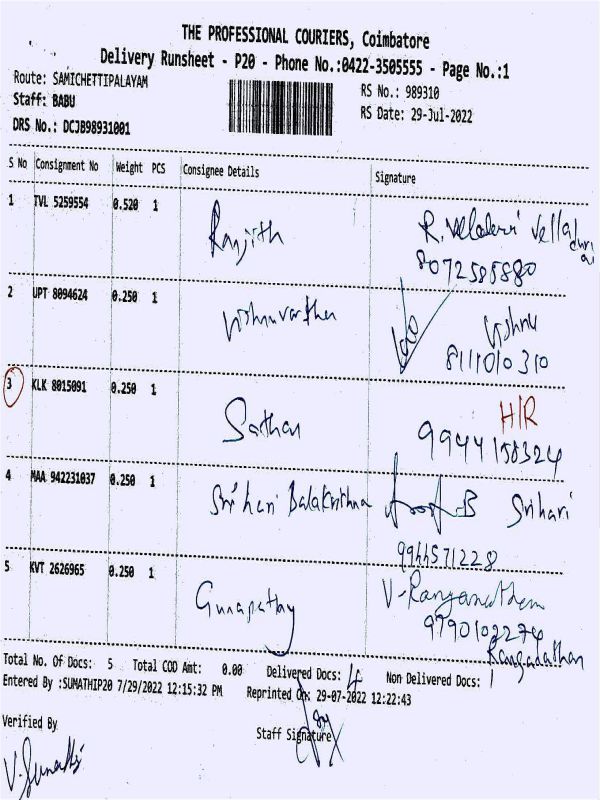 THE PROFESSIONAL COURIERS, Coimbatore
Delivery Runsheet - P20 - Phone No.:0422-3505555 - Page No.:1
Route: SAMICHETTIPALAYAM
RS No.: 989310
Staff: BABU
RS Date: 29-Jul-2022
DRS No.: DCJB98931001
S No Consignment No Weight PCS Consignee Details Signature
1 TVL 5259554 0.520 1 Ranjith R.
8072585880
2 UPT 8094624 0.250 1 Vishnuvarthan Vishnu
8111010310
3 KLK 8015091 0.250 1 Sathan H/R
9944158324
4 MAA 942231037 0.250 1 Sri hari Balakrishna B Srihari
9944571228
5 KVT 2626965 0.250 1 Gunapathy V-Ranganathan
9790102274
Rangadathan
Total No. Of Docs: 5 Total COD Amt: 0.00 Delivered Docs: 4 Non Delivered Docs: 1
Entered By :SUMATHIP20 7/29/2022 12:15:32 PM Reprinted On: 29-07-2022 12:22:43
Verified By
Staff Signature
V. Sumathi